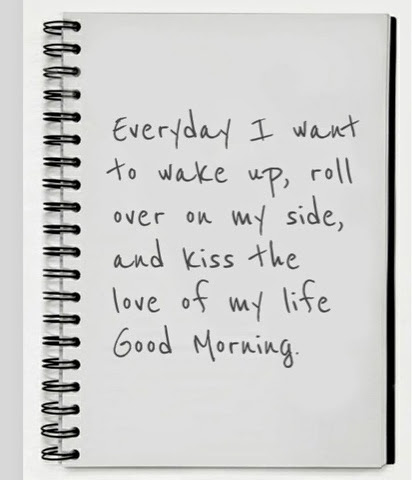 Everyday I want
to wake up, roll
over on my side,
and kiss the
love of my life
Good Morning.